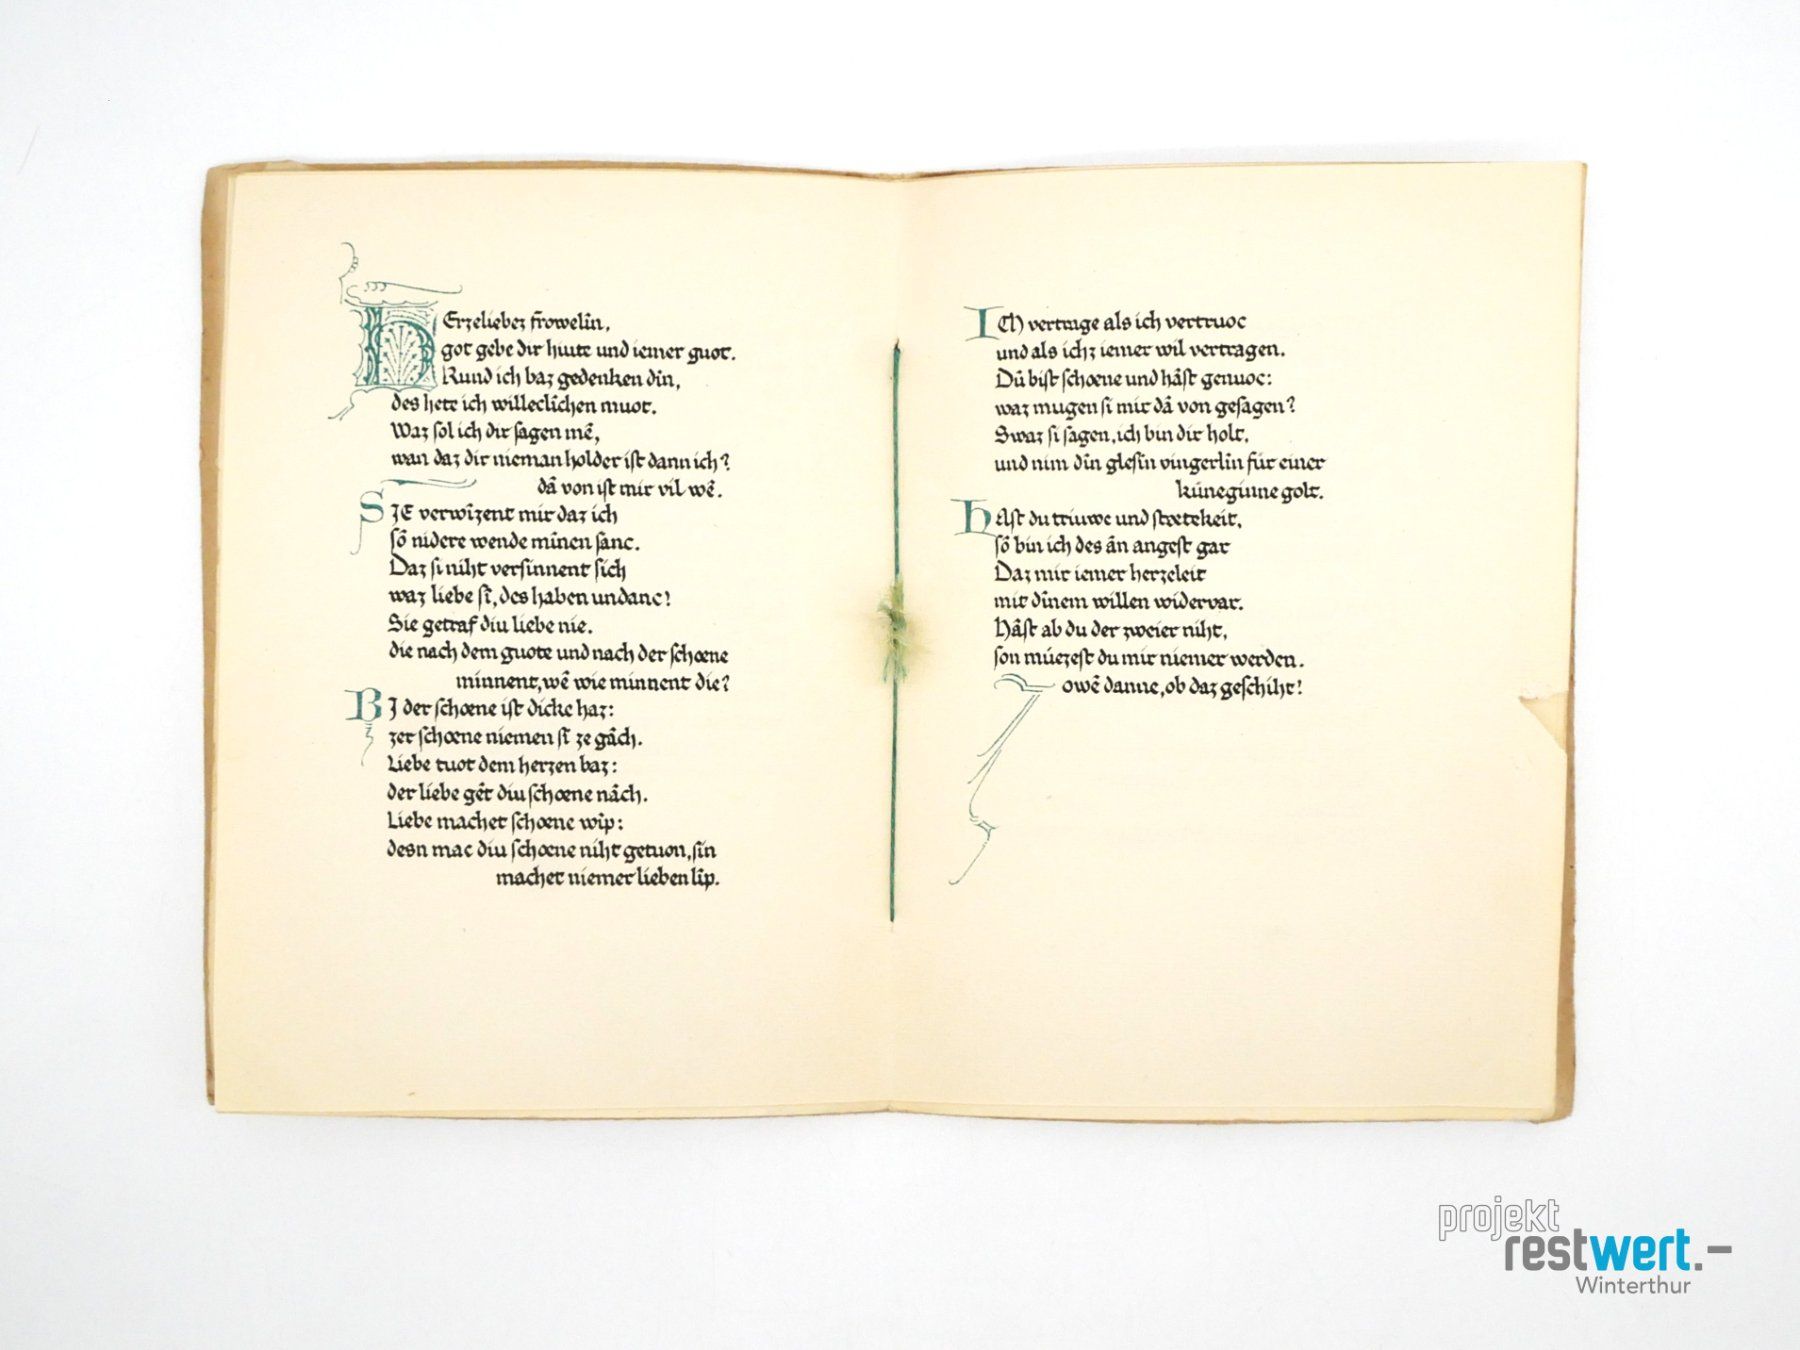 HErzeliebez frowelîn,
got gebe dir hiute und iemer guot.
Kund ich baz gedenken dîn,
des hete ich willeclîchen muot.
Waz sol ich dir sagen mê,
wan daz dir nieman holder ist dann ich?
dâ von ist mir vil wê.
SIE verwîzent mir daz ich
sô nidere wende mînen sanc.
Daz si niht versinnent sich
waz liebe sî, des haben undanc!
Sie getraf diu liebe nie.
die nach dem guote und nach der schœne
minnent, wê wie minnent die?
BI der schœne ist dicke haz:
zer schœne niemen sî ze gâch.
Liebe tuot dem herzen baz:
der liebe gêt diu schœne nâch.
Liebe machet schœne wîp:
desn mac diu schœne niht getuon, sin
machet niemer lieben lîp.
ICh vertrage als ich vertruoc
und als ichz iemer wil vertragen.
Dû bist schœne und hâst genuoc:
waz mugen si mir dâ von gesagen?
Swaz si sagen, ich bin dir holt,
und nim dîn glesîn vingerlîn für einer
küneginne golt.
HAst du triuwe und stætekeit,
sô bin ich des ân angest gar
Daz mir iemer herzeleit
mit dînem willen widervar.
Hâst ab du der zweier niht,
son müezest du mir niemer werden.
owê danne, ob daz geschiht!
projekt
restwert.–
Winterthur